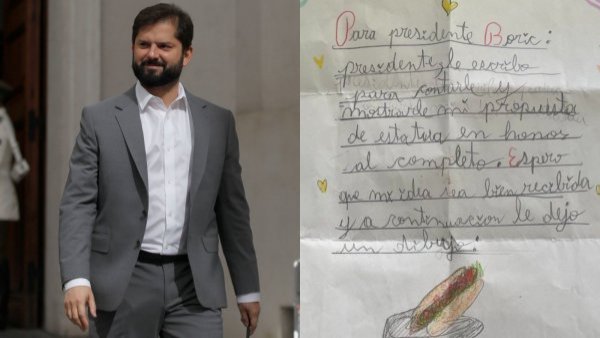 Para presidente Boric:
presidente le escribo
para contarle y
mostrarle mi propuesta
de estatua en honor
al completo. Espero
que mi idia sea bien recibida
y a continuacion le dejo
un dibujo: